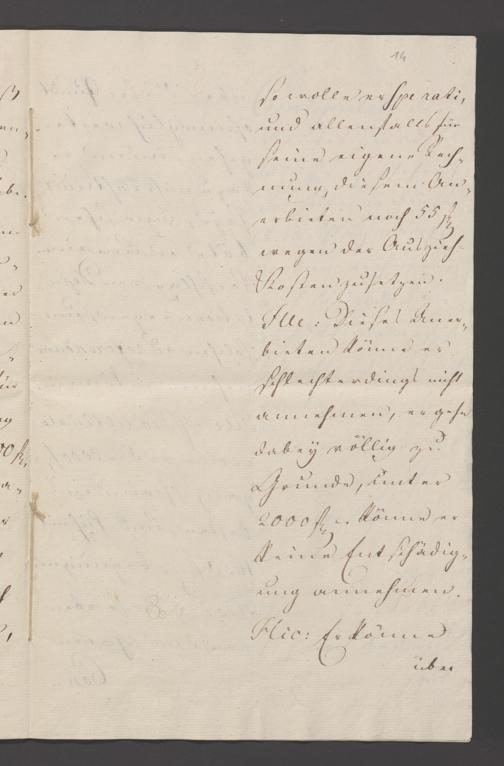 14
so wolle er sperati,
und allenfalls für
seine eigene Rech-
nung, diesem An-
erbieten noch 55 f
wegen der Auszieh-
Kosten zusetzen.
Ille: Dieses Aner-
bieten könne er
schlechterdings nicht
annehmen, er gehe
dabey völlig zu
Grunde, unter
2000 f könne er
keine Entschädig-
ung annehmen.
Hic: Er könne
über